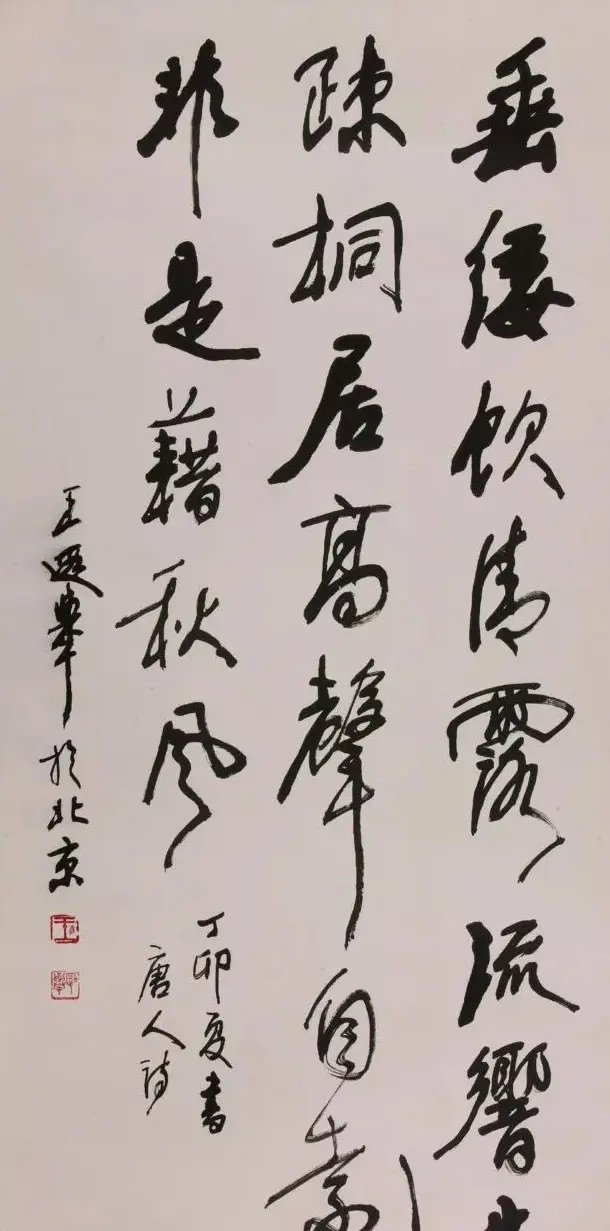 垂緌飲清露流響出
疎桐居高聲自遠
非是藉秋風
丁卯夏書
唐人詩
王遐舉於北京